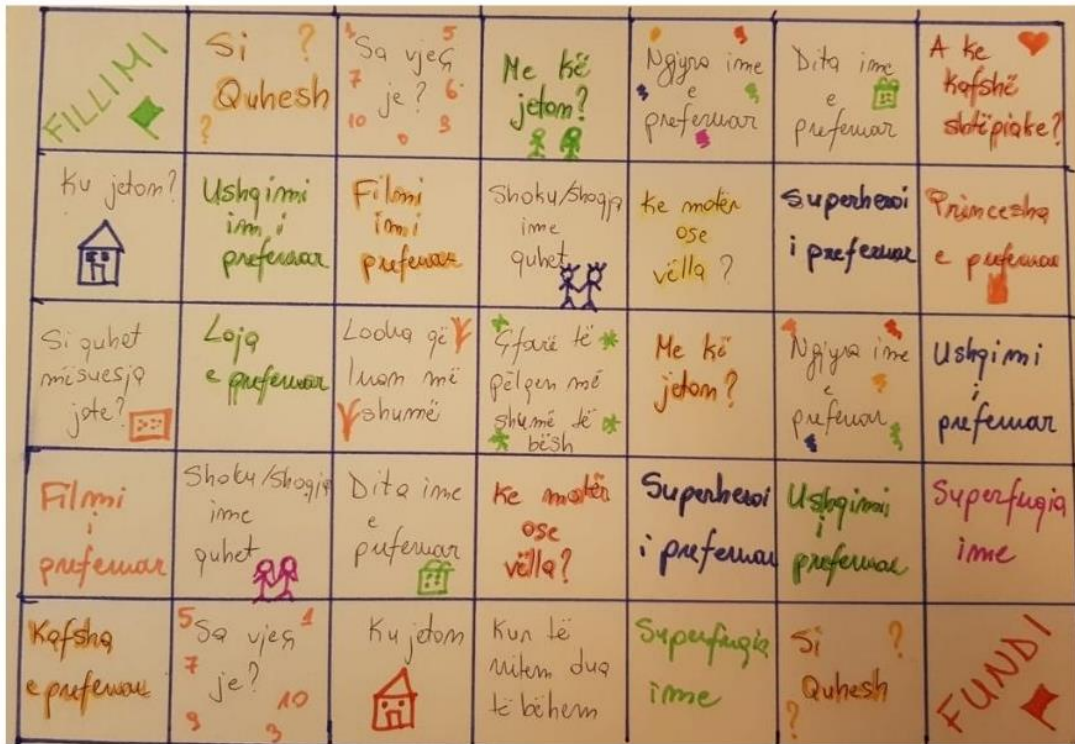 FILLIMI
Si ?
Quhesh
?
1 5
Sa vjeç
7 je? 6
10 0 3
Me kë
jetom?
Ngjyra ime
e
preferuar
Dita ime
e
preferuar
A ke
Kafshë
shtëpiake?
Ku jetom?
Ushqimi
im i
preferuar
Filmi
imi
preferuar
Shoku/Shoqja
ime
quhet
Ke motër
ose
vëlla ?
Superheroi
i preferuar
Princesha
e preferuar
Si quhet
mësuesja
jote?
Loja
e preferuar
Lodra që
luan më
shumë
Çfarë të
pëlqen më
shumë të
bësh
Me kë
jetom?
Ngjyra ime
e
preferuar
Ushqimi
i
preferuar
Filmi
i
preferuar
Shoku/Shoqja
ime
quhet
Dita ime
e
preferuar
Ke motër
ose
vëlla?
Superheroi
i preferuar
Ushqimi
i
preferuar
Superfuqia
ime
Kafsha
e preferuar
5 Sa vjeç 1
7 je?
10
9 3
Ku jetom
Kur të
rritem dua
të bëhem
Superfuqia
ime
Si ?
Quhesh
?
FUNDI